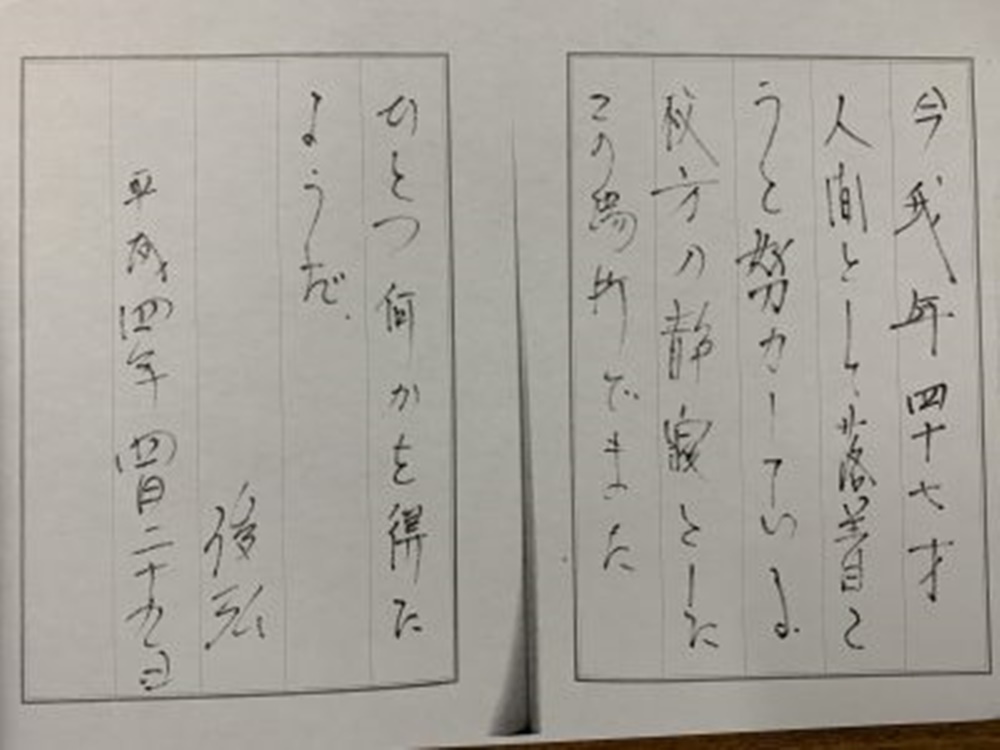 今我年四十七才
人間として落着こ
うと努力している
彼方の静寂とした
この場所でまた
ひとつ何かを得た
ようだ。
俊弘
平成四年四月二十九日